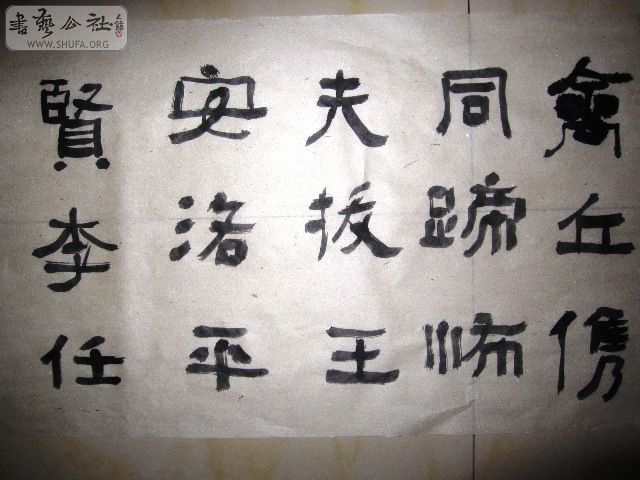 書藝公社
WWW.SHUFA.ORG
丘儁
同蹄怖
夫拔王
安洛平
賢李任